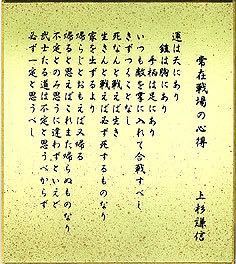 常在戦場の心得
上杉謙信
運は天にあり
鎧は胸にあり
手柄は足にあり
いつも敵を掌に入れて合戦すべし
きずつくことなし
死なんと戦えば生き
生きんと戦えば必ず死するものなり
家を出ずるより
帰らじとおもえば又帰る
帰ると思えばこれまた帰らぬものなり
不定とのみ思うに違わずといえど
武士たる道は不定と思うべからず
必ず一定と思うべし